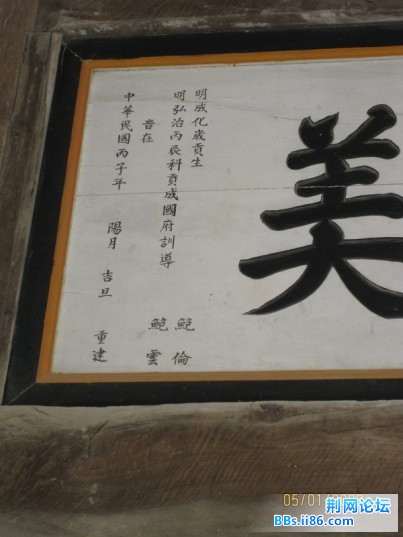 美
明成化歲貢生 鮑倫
明弘治丙辰科貢成國府訓導 鮑雲
旹在
中華民國丙子年 陽月 吉旦 重建
05/01
荆网论坛
BBs.ii86.com